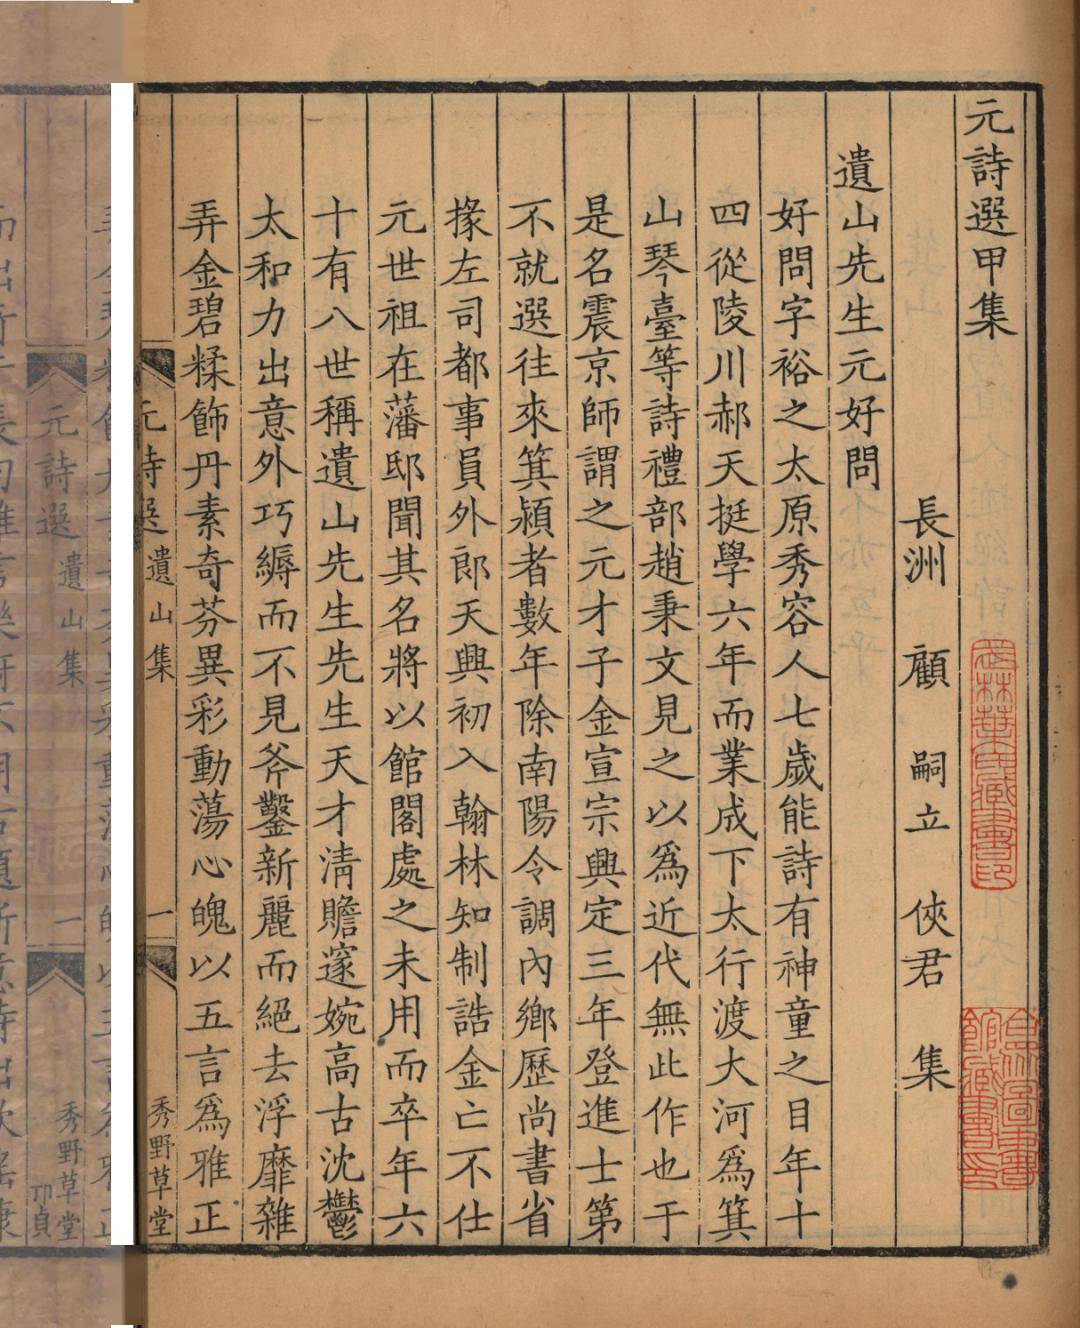 元詩選甲集
長洲 顧 嗣立 俠君 集
遺山先生元好問
好問字裕之太原秀容人七歲能詩有神童之目年十
四從陵川郝天挺學六年而業成下太行渡大河爲箕
山琴臺等詩禮部趙秉文見之以爲近代無此作也于
是名震京師謂之元才子金宣宗興定三年登進士第
不就選往來箕潁者數年除南陽令調內鄉歷尚書省
掾左司都事員外郎天興初入翰林知制誥金亡不仕
元世祖在藩邸聞其名將以館閣處之未用而卒年六
十有八世稱遺山先生先生天才淸贍邃婉高古沈鬱
太和力出意外巧縟而不見斧鑿新麗而絕去浮靡雜
弄金碧糅飾丹素奇芬異彩動蕩心魄以五言爲雅正
元詩選 遺山集 一 秀野草堂
元詩選 遺山集 一 秀野草堂